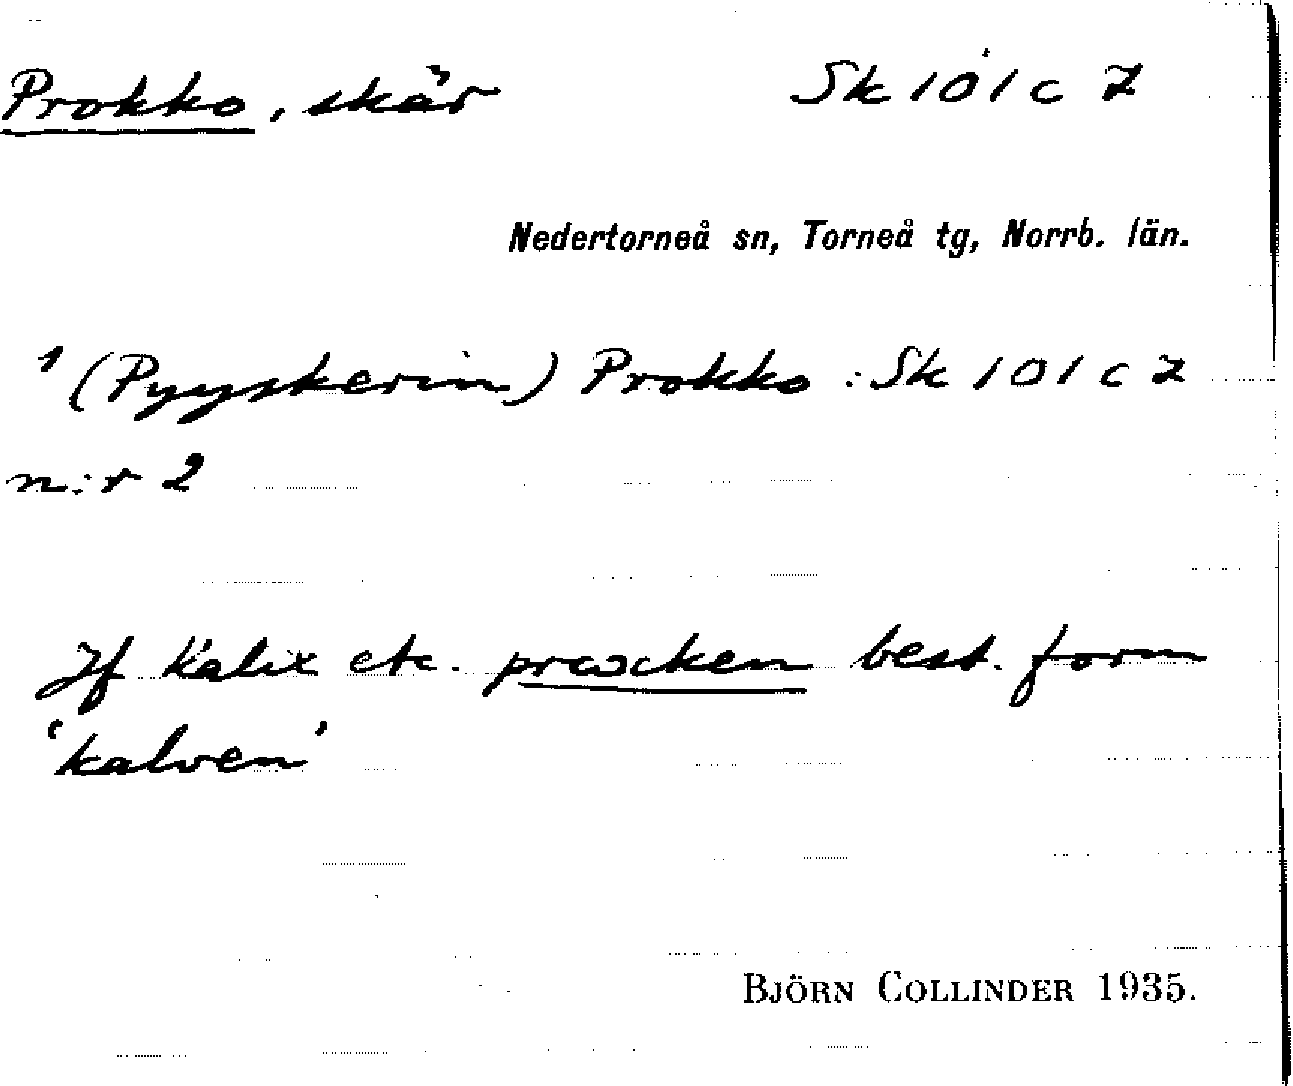 Prokko, skär Sk 101 c 7
Nedertorneå sn, Torneå tg, Norrb. län.
1 (Pyyskerin) Prokko : Sk 101 c 7
n:r 2
Jf Kalix etc. best. form
'kalven'
BJÖRN COLLINDER 1935.